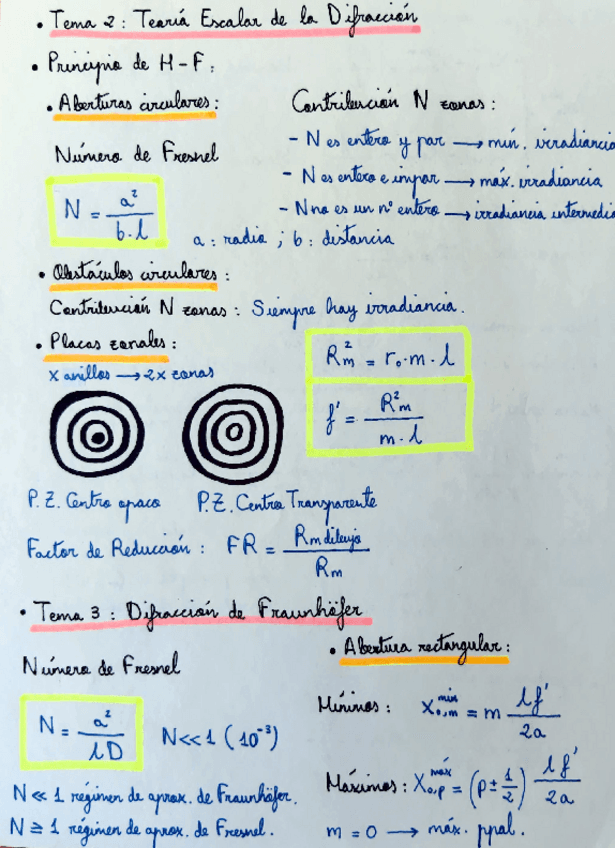 • Tema 2 : Teoría Escalar de la Difracción
• Principio de H-F:
• Aberturas circulares:
Número de Fresnel
N = a² / b·λ
a : radio ; b : distancia
Contribución N zonas:
- N es entero y par → mín. irradiancia
- N es entero e impar → máx. irradiancia
- N no es un nº entero → irradiancia intermedia
• Obstáculos circulares:
Contribución N zonas: Siempre hay irradiancia.
• Placas zonales:
x anillos → 2x zonas
R²m = r₀·m·λ
f' = R²m / m·λ
P.Z. Centro opaco
P.Z. Centro Transparente
Factor de Reducción : FR = Rm dibujo / Rm
• Tema 3 : Difracción de Fraunhöfer
Número de Fresnel
N = a² / λD
N<<1 (10⁻³)
N << 1 régimen de aprox. de Fraunhöfer.
N ≥ 1 régimen de aprox. de Fresnel.
• Abertura rectangular:
Mínimos: X₀,m^mín = m λf' / 2a
Máximos: X₀,p^máx = (p ± 1/2) λf' / 2a
m = 0 → máx. ppal.